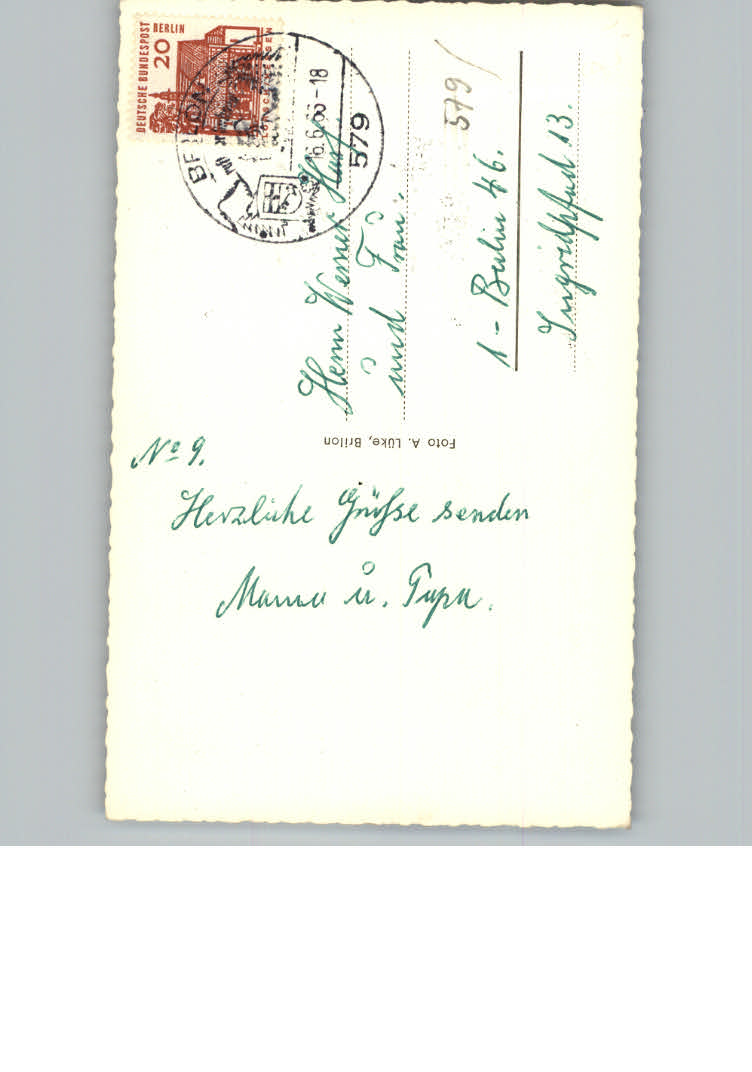 DEUTSCHE BUNDESPOST BERLIN
20
BRILON
16.6.66-18
579
579
Herrn Werner
und Frau.
1 - Berlin 46.
Ingridpfad 13.
Foto A. Lüke, Brilon
No 9.
Herzliche Grüße senden
Mama u. Papa.